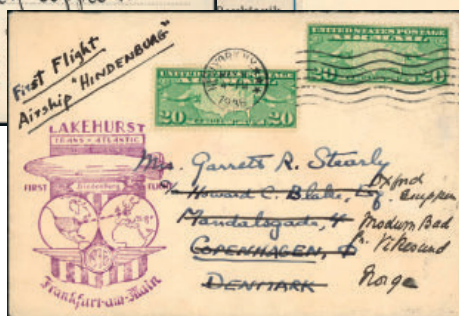 First Flight
Airship "HINDENBURG"
UNITED STATES POSTAGE
AIR MAIL
20 20
UNITED STATES POSTAGE
AIR MAIL
20 20
NEW YORK, N.Y.
1936
LAKEHURST
TRANS-ATLANTIC
FIRST Hindenburg FLIGHT
1936
Frankfurt-am-Main
Mrs. Garrett R. Stearly
c/o Howard C. Blake, Esq
Mandalsgade, 4
COPENHAGEN, Ø
DENMARK
Oxford
Modum Bad
Pr. Vikesund
Norge